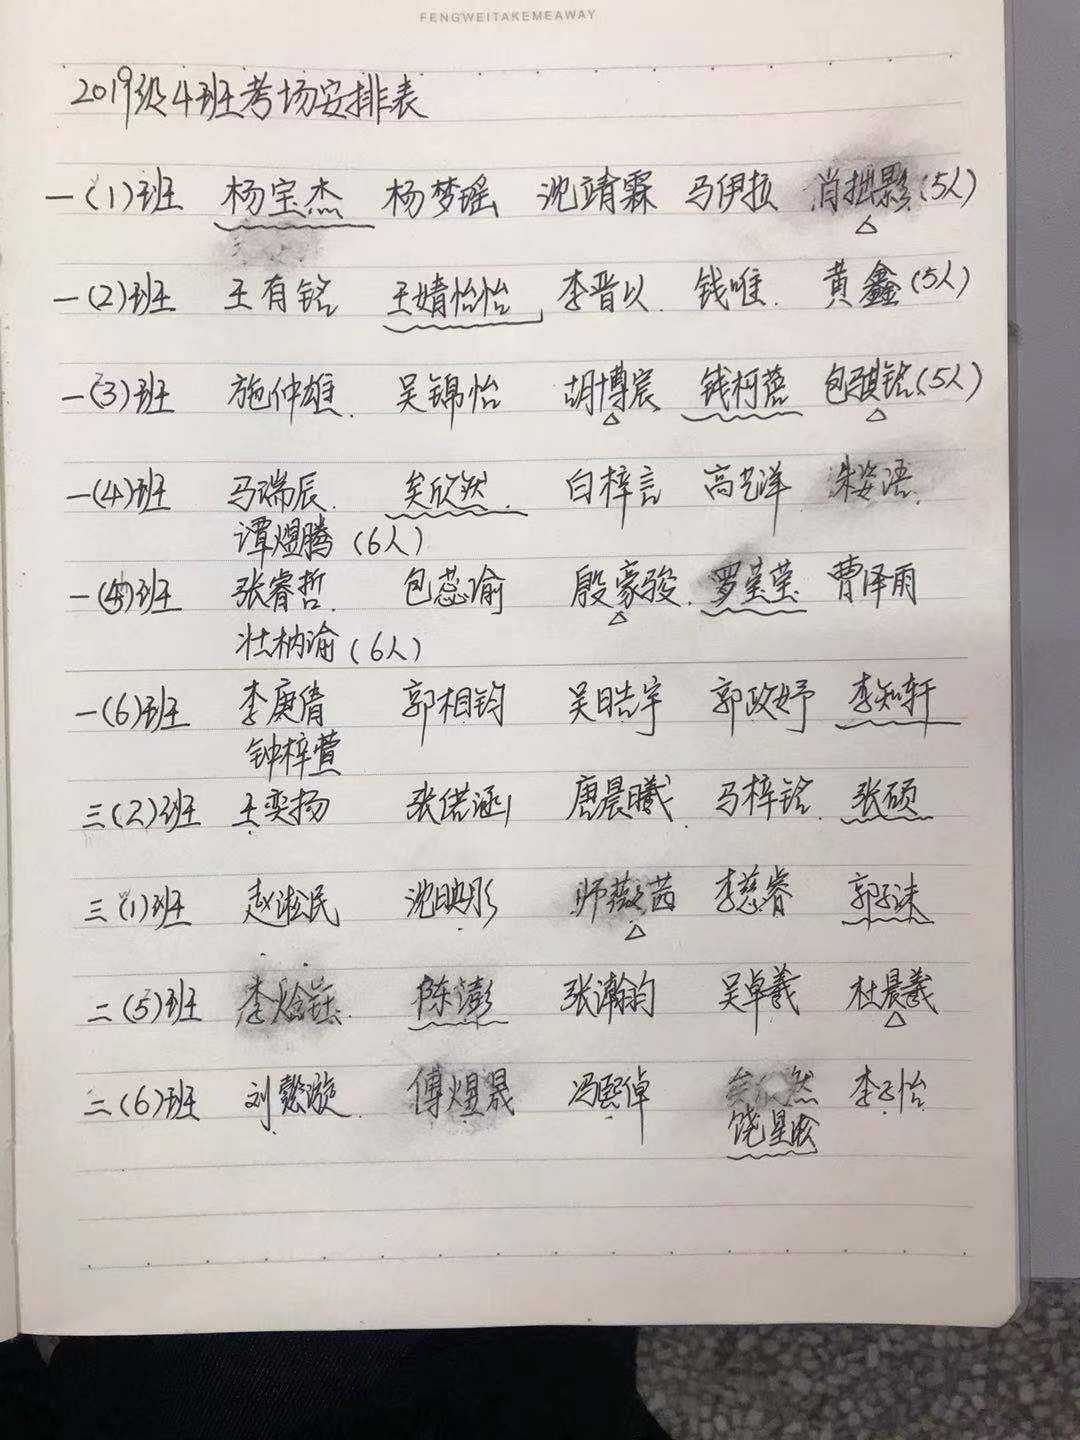 FENGWEITAKEMEAWAY
2019级4班考场安排表
一(1)班 杨宝杰 杨梦瑶 沈靖霖 马伊拉 肖拙影(5人)
一(2)班 王有铭 王婧怡怡 李晋以 钱唯 黄鑫(5人)
一(3)班 施仲雄 吴锦怡 胡博宸 钱柯蓓 包骐铭(5人)
一(4)班 马瑞辰 矣欣然 白梓言 高艺洋 朱姿语
谭煜腾(6人)
一(5)班 张睿哲 包蕊瑜 殷豪骏 罗莹莹 曹泽雨
壮枘渝(6人)
一(6)班 李庚倩 郭相钧 吴晧宇 郭政妤 李知轩
钟梓萱
三(2)班 王奕扬 张偌涵 唐晨曦 马梓铭 张硕
三(1)班 赵淞民 沈映彤 师薇茜 李慈睿 郭子涞
二(5)班 李 陈澎 张瀚钧 吴卓羲 杜晨羲
二(6)班 刘懿漩 傅煜晟 冯熙倬 矣欣然 李子怡
饶星